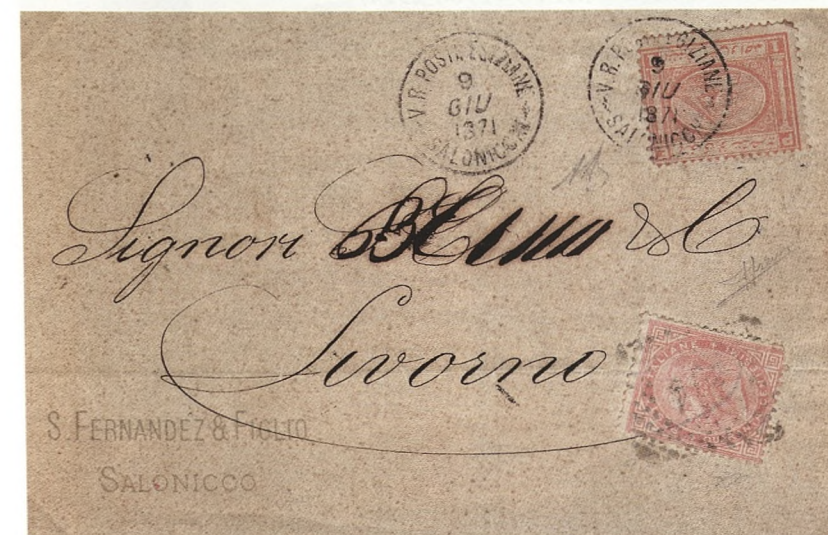 V.R. POSTE EGIZIANE
9
GIU
1871
SALONICCO
V.R. POSTE EGIZIANE
9
GIU
1871
SALONICCO
Signori & C
Livorno
S. FERNANDEZ & FIGLIO
SALONICCO